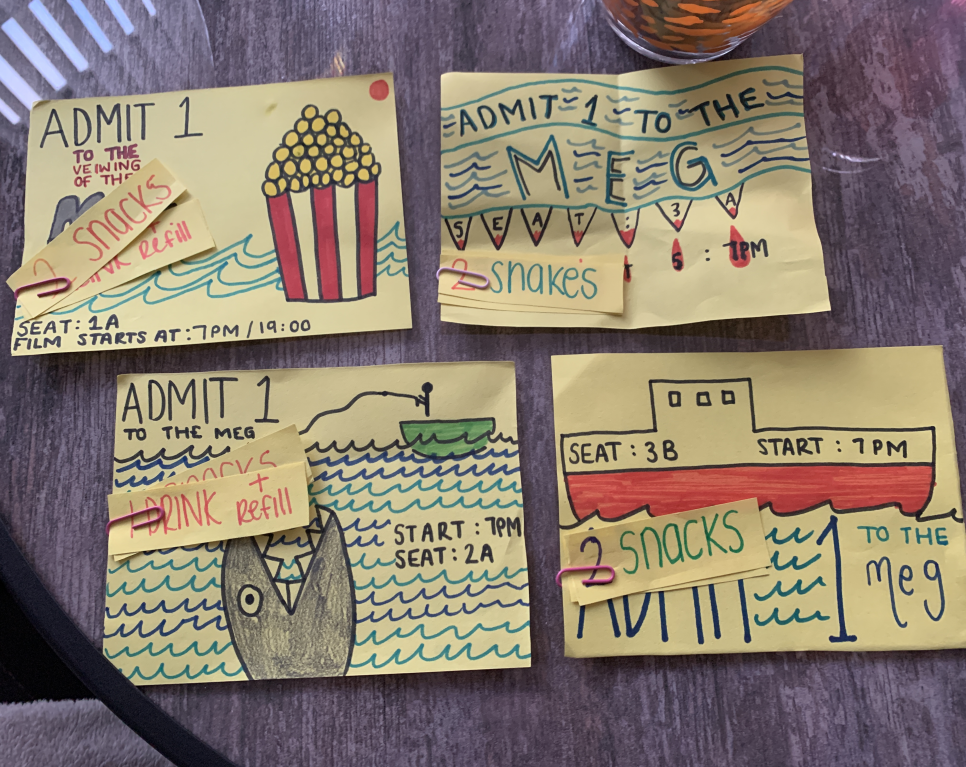 ADMIT 1
TO THE
VEIWING
OF THE
2 SNACKS
DRINK Refill
SEAT : 1A
FILM STARTS AT : 7PM / 19:00
ADMIT 1 TO THE
MEG
SEAT : 3A
: 7PM
2 snakes
ADMIT 1
TO THE MEG
SNACKS
1 DRINK + Refill
START : 7PM
SEAT : 2A
SEAT : 3B
START : 7PM
2 snacks
ADMIT 1
TO THE
Meg